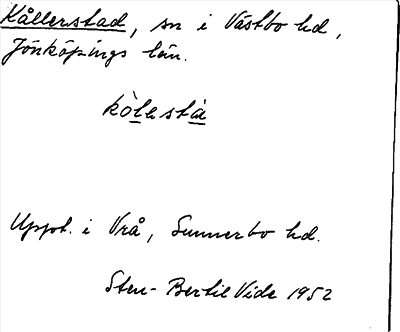 Kållerstad, sn i Västbo hd,
Jönköpings län.
kòlestà
Uppt. i Vrå, Sunnerbo hd.
Sten-Bertil Vide 1952